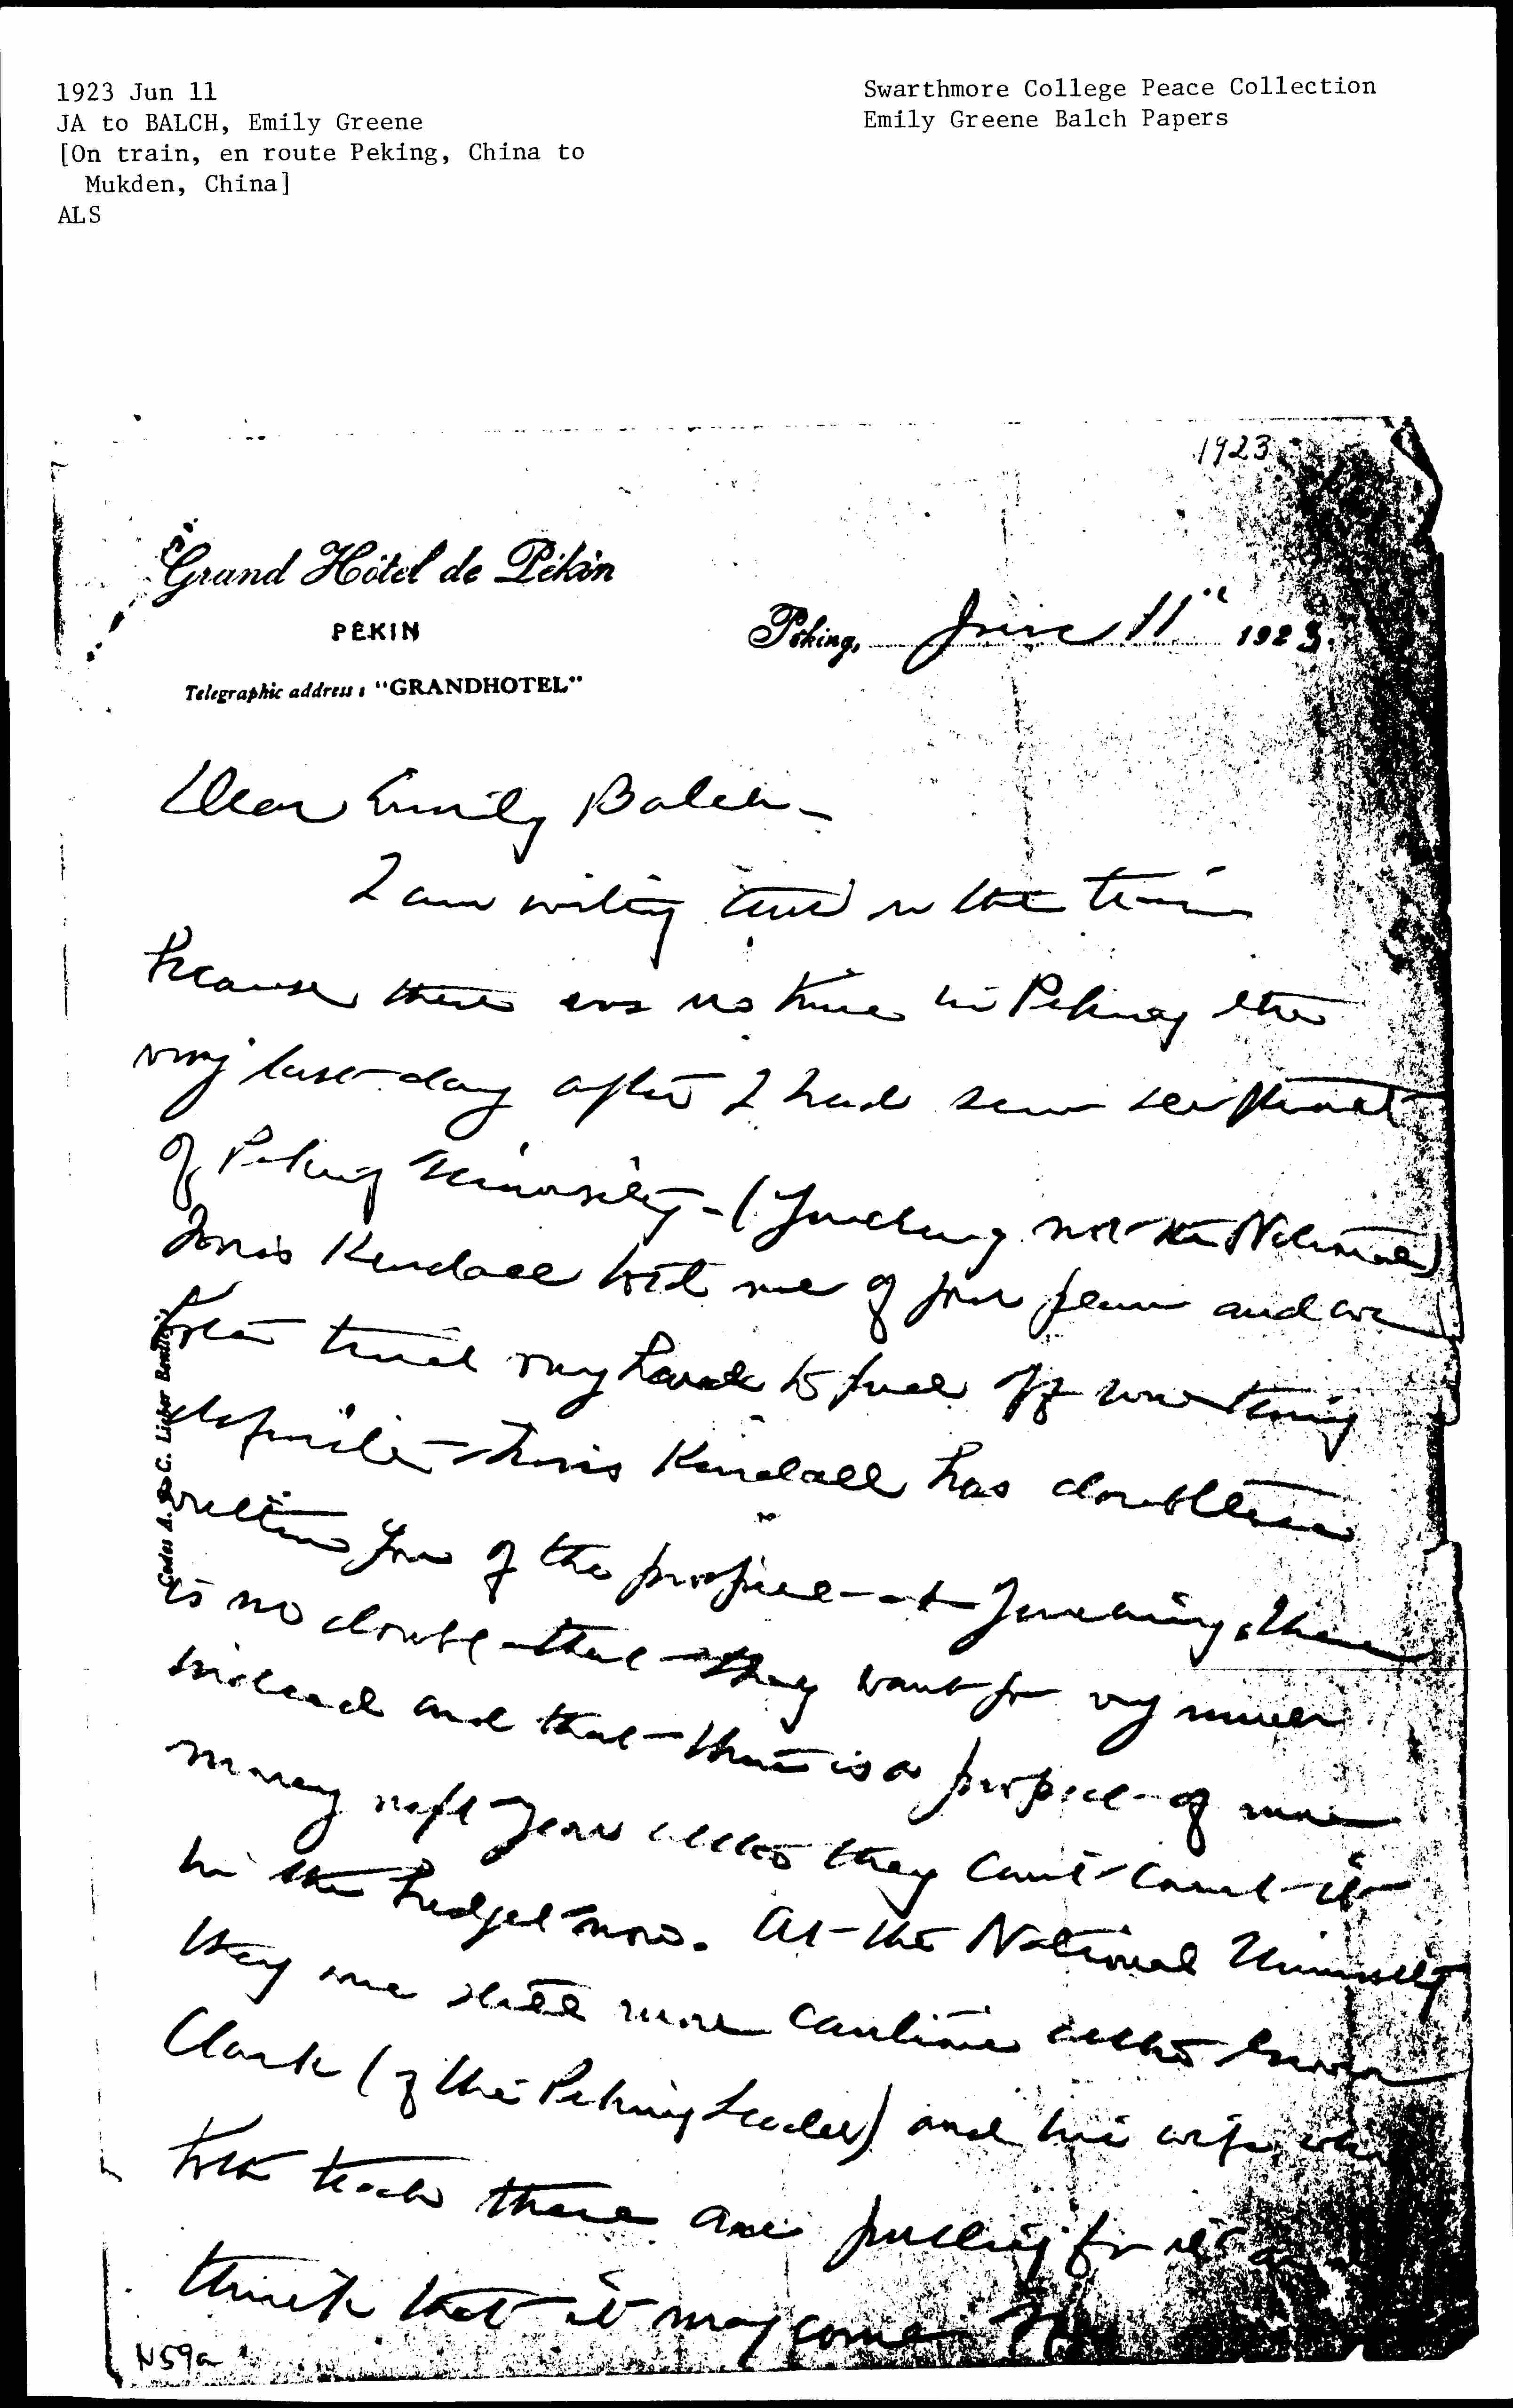 1923 Jun 11
JA to BALCH, Emily Greene
[On train, en route Peking, China to
Mukden, China]
ALS
Swarthmore College Peace Collection
Emily Greene Balch Papers
1923
Grand Hôtel de Pékin
PÉKIN
Telegraphic address : "GRANDHOTEL"
Peking, June 11" 1923.
Dear Emily Balch -
I am writing this on the train
because there was no time in Peking the
very last day after I had seen
of Peking University - ( not the National)
Kendall told me of your plan and we
both tried very hard to pull off something
definite - Kendall has doubtless
written you of the prospect at . There
is no doubt that they want you very much
indeed and that there is a prospect of more
money next year altho they can't count it
in the budget now. At the National University
they are still more cautious altho
Clark (of the Peking Leader) and his wife who
both teach there are pulling for it and
think that it may come
Codes A. B. C. Lieber Bentley's
N59a